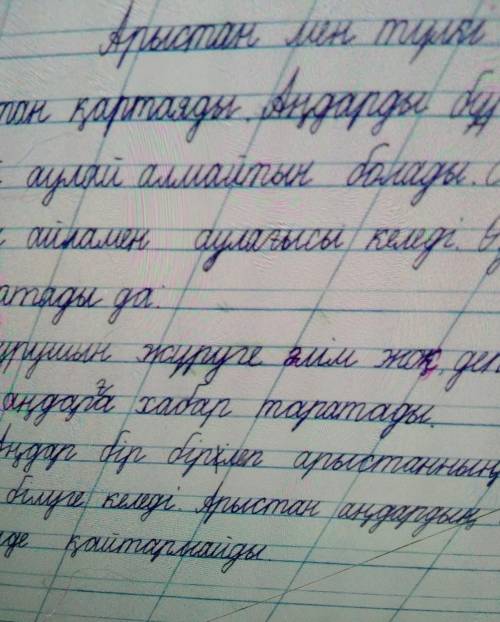 Арыстан мен түлкі
тан қартаяды. Аңдарды бұ
аулай алмайтын болады.
айламен аулағысы келеді.
атады да:
журуге әлім жоқ деп
аңдарға хабар таратады.
Аңдар бір бірлеп арыстанның
білуге келеді. Арыстан аңдардың
де қайтармайды.